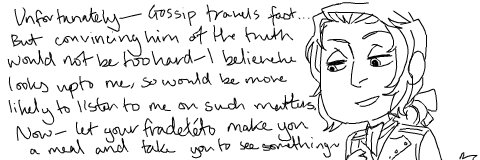 Unfortunately— Gossip travels fast...
But convincing him of the truth
would not be too hard—I believe he
looks up to me, so would be more
likely to listen to me on such matters.
Now— let your fradetéto make you
a meal and take you to see something~